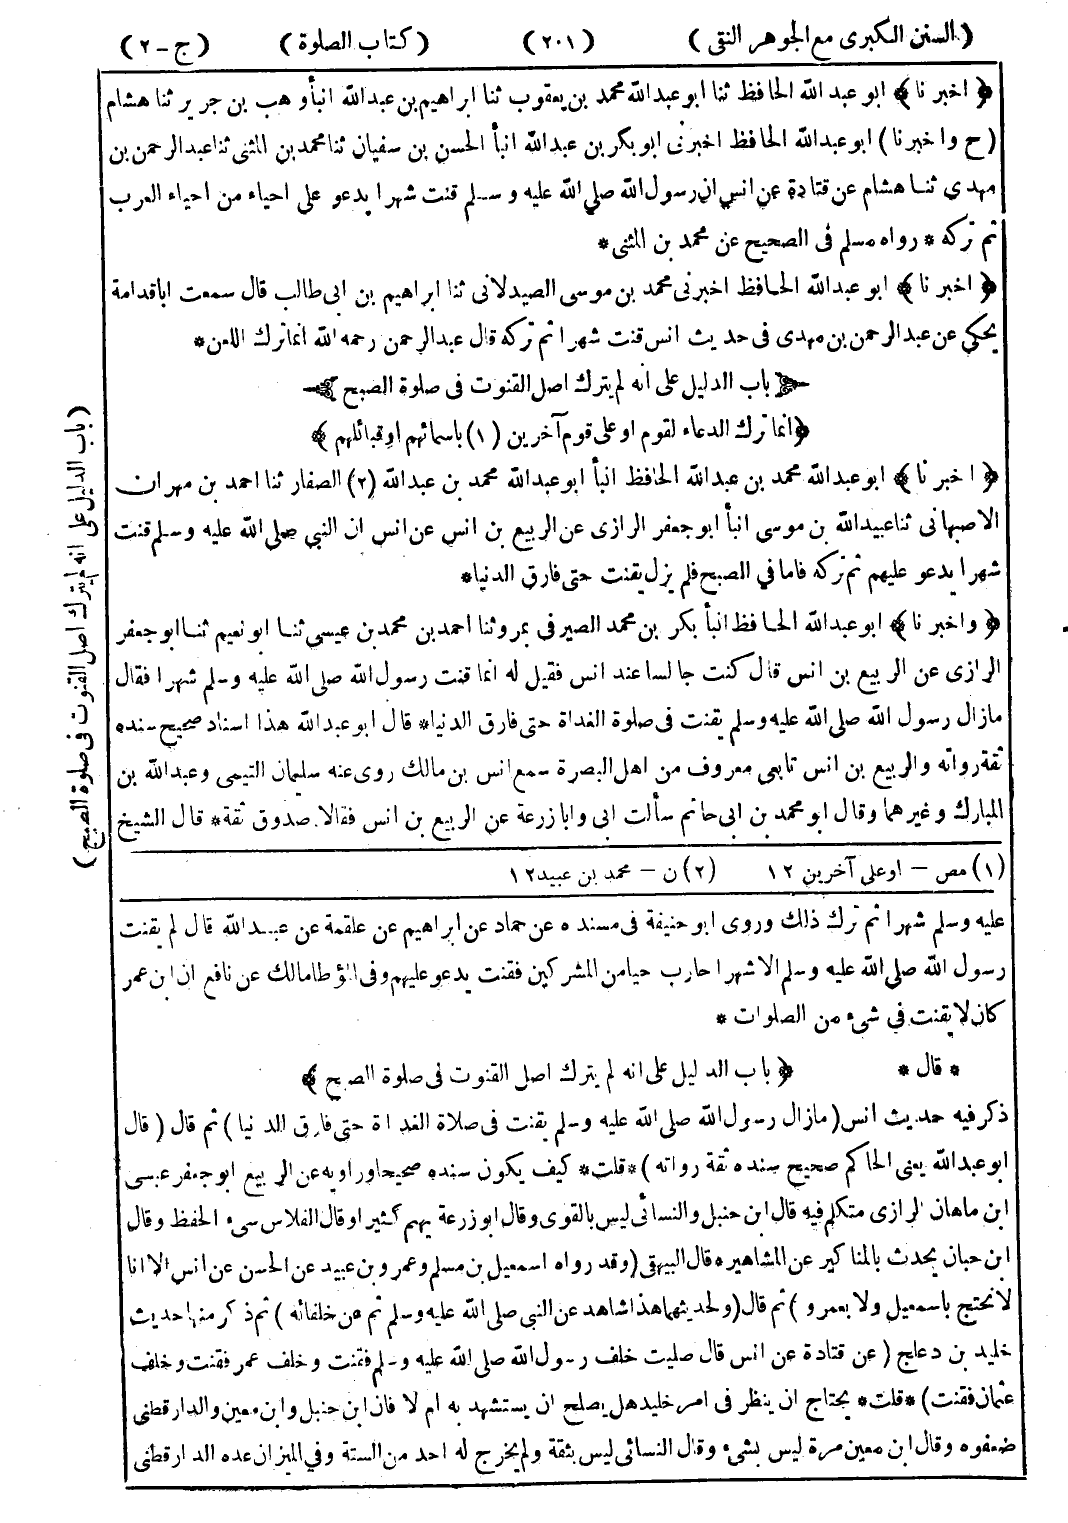 (السنن الكبرى مع الجوهر النقى) (٢٠١) (كتاب الصلوة) (ج-٢)
﴿ اخبر نا ﴾ ابو عبد الله الحافظ ثنا ابو عبدالله محمد بن يعقوب ثنا ابراهيم بن عبدالله انبأ وهب بن جرير ثنا هشام
(ح واخبرنا) ابو عبدالله الحافظ اخبرنى ابو بكر بن عبدالله انبأ الحسن بن سفيان ثنا محمد بن المثنى ثنا عبد الرحمن بن
مهدى ثنا هشام عن قتادة عن انس ان رسول الله صلى الله عليه وسلم قنت شهرا يدعو على احياء من احياء العرب
ثم تركه * رواه مسلم فى الصحيح عن محمد بن المثنى *
﴿ اخبر نا ﴾ ابو عبدالله الحافظ اخبرنى محمد بن موسى الصيدلانى ثنا ابراهيم بن ابى طالب قال سمعت اباقدامة
يحكي عن عبد الرحمن بن مهدى فى حديث انس قنت شهرا ثم تركه قال عبدالرحمن رحمه الله انما ترك اللعن *
باب الدليل على انه لم يترك اصل القنوت فى صلوة الصبح
﴿ انما ترك الدعاء لقوم او على قوم آخرين (١) باسمائهم او قبائلهم ﴾
﴿ اخبر نا ﴾ ابو عبدالله محمد بن عبدالله الحافظ انبأ ابو عبدالله محمد بن عبدالله (٢) الصفار ثنا احمد بن مهران
الاصبهانى ثنا عبيدالله بن موسى انبأ ابو جعفر الرازى عن الربيع بن انس عن انس ان النبي صلى الله عليه وسلم قنت
شهرا يدعو عليهم ثم تركه فاما في الصبح فلم يزل يقنت حتى فارق الدنيا *
﴿ واخبر نا ﴾ ابو عبدالله الحافظ انبأ بكر بن محمد الصير فى بمرو ثنا احمد بن محمد بن عيسى ثنا ابو نعيم ثنا ابو جعفر
الرازى عن الربيع بن انس قال كنت جالسا عند انس فقيل له انما قنت رسول الله صلى الله عليه وسلم شهرا فقال
مازال رسول الله صلى الله عليه وسلم يقنت فى صلوة الغداة حتى فارق الدنيا * قال ابو عبدالله هذا اسناد صحيح سنده
ثقة رواته والربيع بن انس تابعى معروف من اهل البصرة سمع انس بن مالك روى عنه سليمان التيمى وعبدالله بن
المبارك وغيرهما وقال ابو محمد بن ابى حاتم سألت ابى وابا زرعة عن الربيع بن انس فقالا صدوق ثقة * قال الشيخ
(باب الدليل على انه لم يترك اصل القنوت فى صلوة الصبح)
(١) مص - او على آخرين ١٢ (٢) ن - محمد بن عبيد ١٢
عليه وسلم شهرا ثم ترك ذلك وروى ابو حنيفة فى مسنده عن حماد عن ابراهيم عن علقمة عن عبدالله قال لم يقنت
رسول الله صلى الله عليه وسلم الا شهرا حارب حيا من المشركين فقنت يدعو عليهم وفى المؤطا مالك عن نافع ان ابن عمر
كان لا يقنت في شىء من الصلوات *
* قال * ﴿ باب الدليل على انه لم يترك اصل القنوت فى صلوة الصبح ﴾
ذكر فيه حديث انس (مازال رسول الله صلى الله عليه وسلم يقنت فى صلاة الغداة حتى فارق الدنيا) ثم قال (قال
ابو عبدالله يعنى الحاكم صحيح سنده ثقة رواته) * قلت * كيف يكون سنده صحيحا وراويه عن الربيع ابو جعفر عيسى
ابن ماهان الرازى متكلم فيه قال ابن حنبل والنسائى ليس بالقوى وقال ابو زرعة يهم كثيرا وقال الفلاس سىء الحفظ وقال
ابن حبان يحدث بالمناكير عن المشاهير * قال البيهقى (وقد رواه اسمعيل بن مسلم وعمرو بن عبيد عن الحسن عن انس الا انا
لا نحتج باسمعيل ولا بعمرو) ثم قال (ولحديثهما هذا شاهد عن النبي صلى الله عليه وسلم ثم عن خلفائه) ثم ذكر منها حديث
خليد بن دعلج (عن قتادة عن انس قال صليت خلف رسول الله صلى الله عليه وسلم فقنت وخلف عمر فقنت وخلف
عثمان فقنت) * قلت * يحتاج ان ينظر فى امر خليد هل يصلح ان يستشهد به ام لا فان ابن حنبل وابن معين والدارقطنى
ضعفوه وقال ابن معين مرة ليس بشىء وقال النسائى ليس بثقة ولم يخرج له احد من الستة وفي الميزان عده الدارقطنى